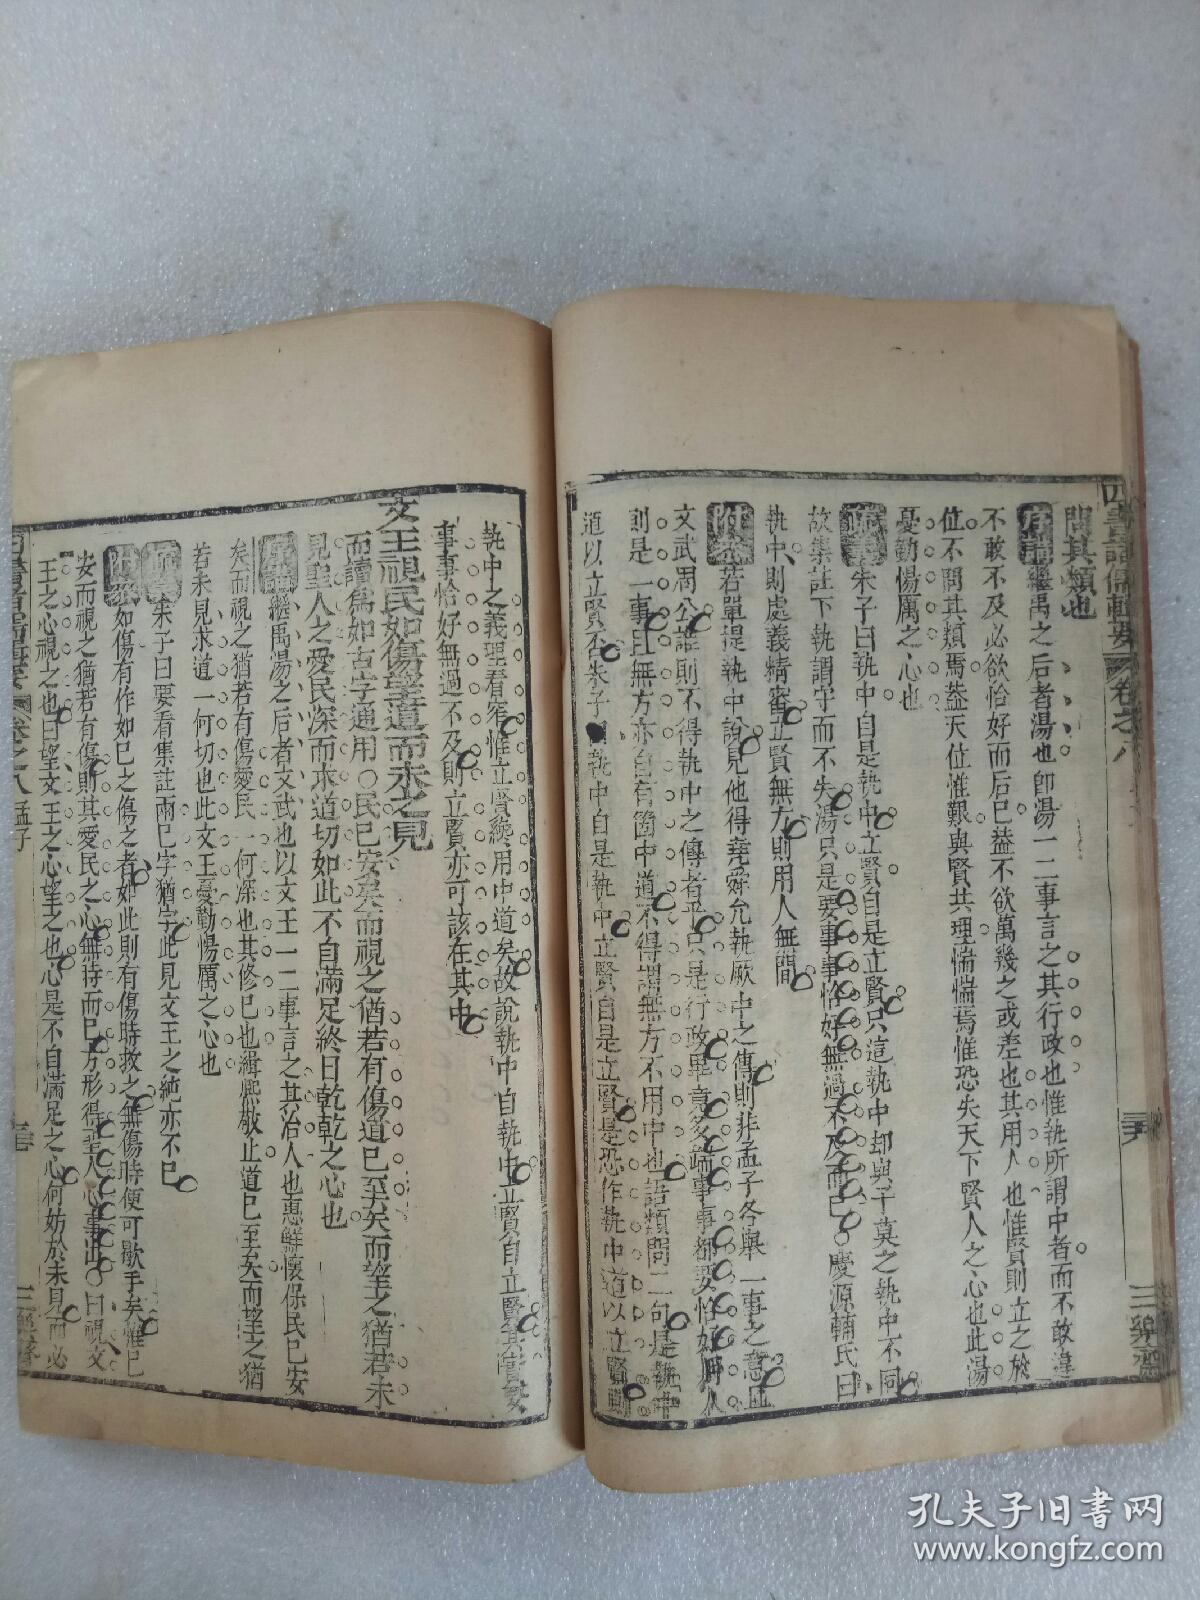 四書諸儒輯要 卷之八 三樂齋
問其類也
存講繼禹之后者湯也卽湯一二事言之其行政也惟執所謂中者而不敢違
不敢不及必欲恰好而后已葢不欲萬幾之或差也其用人也惟賢則立之於
位不問其類焉葢天位惟艱與賢共理惴惴焉惟恐失天下賢人之心也此湯
憂勤惕厲之心也
朱子曰執中自是執中立賢自是立賢只這執中却與子莫之執中不同
故集註下執謂守而不失湯只是要事事恰好無過不及而已○慶源輔氏曰
執中則處義精審立賢無方則用人無間
附參若單提執中說見他得堯舜允執厥中之傳則非孟子各舉一事之意且
文武周公誰則不得執中之傳者乎只是行政畢竟多端事事都要恰好用人
則是一事且無方亦自有箇中道不得謂無方不用中也語類問二句是執中
道以立賢否朱子曰執中自是執中立賢自是立賢是恐作執中道以立賢則
執中之義理看窄惟立賢纔用中道矣故說執中自執中立賢自立賢其實
事事恰好無過不及則立賢亦可該在其中
文王視民如傷望道而未之見
而讀爲如古字通用○民已安矣而視之猶若有傷道已至矣而望之猶若未
見聖人之愛民深而求道切如此不自滿足終日乾乾之心也
存講繼禹湯之后者文武也以文王一二事言之其治人也惠鮮懷保民已安
矣而視之猶若有傷愛民一何深也其修已也緝熙敬止道已至矣而望之猶
若未見求道一何切也此文王憂勤惕厲之心也
朱子曰要看集註兩已字猶字此見文王之純亦不已
附參如傷有作如已之傷之者如此則有傷時救之無傷時便可歇手矣惟已
安而視之猶若有傷則其愛民之心無時而已方形得聖人心事出○曰視文
王之心視之也曰望文王之心望之也心是不自滿足之心何妨於未見而必
四書諸儒輯要 卷之八 孟子 三樂齋
www.kongfz.com
孔夫子旧书网